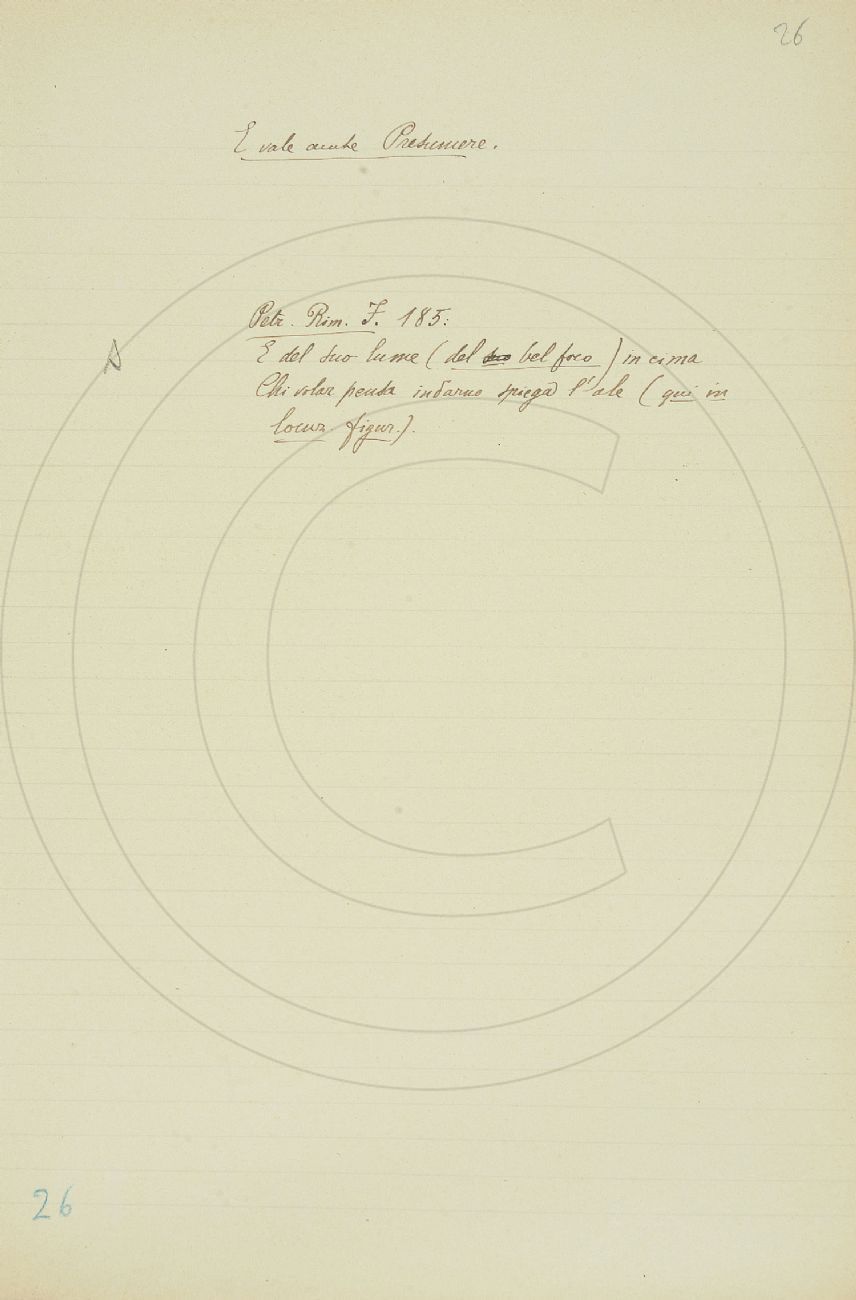 26
E vale anche Presumere.
Petr. Rim. I. 185:
E del suo lume (del suo bel foco) in cima
Chi volar pensa indarno spiega l'ale (qui in
locuz. figur.).
26